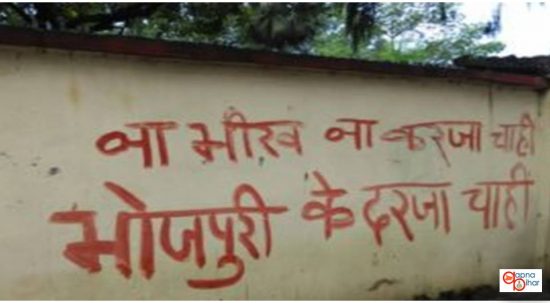 ना भीख ना करजा चाही
भोजपुरी के दरजा चाही
apna
Bihar